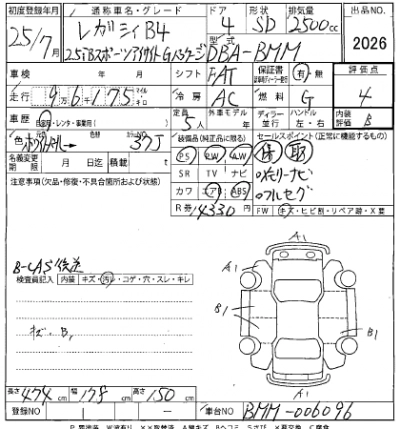 初度登録年月 通称車名・グレード ドア 形状 排気量 出品NO.
25年/7月 レガシィB4 4 SD 2500cc
2.5i Bスポーツアイサイト Gパッケージ 型式 DBA-BMM 2026
車検 年 月 シフト FAT 保証書 有 無 評価点
走行 9万6千175 冷房 AC 燃料 G 4
車歴 自家用・レンタ・事業用( ) 定員 5人 外車モデル 年 ディーラー 並行 ハンドル 左・右 内装評価 B
色 ホワイトパール→ 色替 37J 装備品(純正品に限る) セールスポイント(正常に機能するもの)
名義変更期限 月 日迄 積載 t PS PW AW 保 取
注意事項(欠品・修復・不具合箇所および状態) SR TV ナビ ○メモリーナビ
カワ エアB ABS ○フルセグ
R券 14330円 FW キズ・ヒビ割・リペア跡・X要
A1
A1
B-CAS後送
検査員記入 内装 キズ・汚れ・コゲ・穴・スレ・キレ
B1
キズ、B1 B1
A1
長さ 474cm 幅 178cm 高さ 150cm
登録NO 車台NO BMM-006096